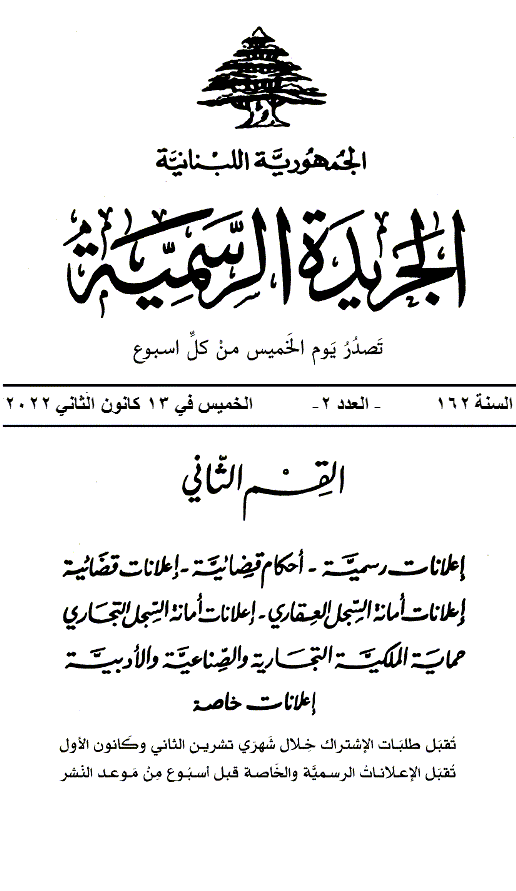 الجمهورية اللبنانية
الجريدة الرسمية
تَصدُرُ يَوم الخَميس منْ كلِّ اسبوع
السنة ١٦٢ - العدد ٢- الخميس في ١٣ كانون الثاني ٢٠٢٢
القِسْم الثاني
إعلانات رسميَّة - أحكام قضائيَّة - إعلانات قضائية
إعلانات أمانة السِّجل العقاري - إعلانات أمانة السِّجل التجاري
حماية الملكيَّة التجارية والصِّناعيَّة والأدبيَّة
إعلانات خاصة
تُقبَل طلبَات الإشتراك خِلال شَهرَي تشرين الثاني وكَانون الأول
تُقبَل الإعلاناتُ الرسميَّة والخَاصة قبل أسبُوع مِنْ مَوعد النَشر